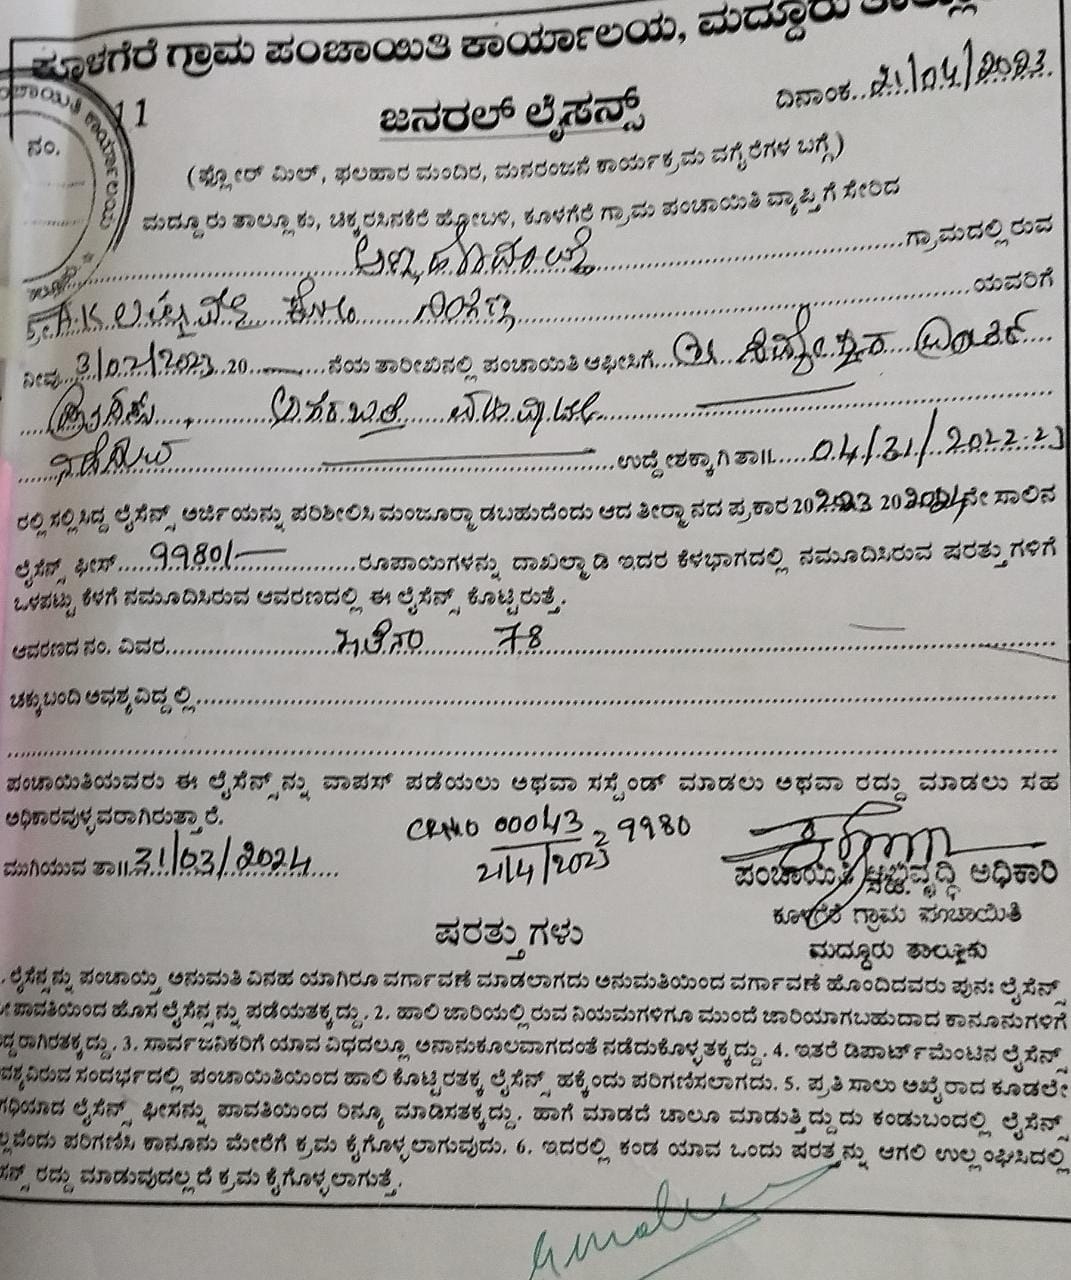 ಕೂಳಗೆರೆ ಗ್ರಾಮ ಪಂಚಾಯಿತಿ ಕಾರ್ಯಾಲಯ, ಮದ್ದೂರು
11
ದಿನಾಂಕ..21/04/2023.
ಜನರಲ್ ಲೈಸೆನ್ಸ್
ನಂ.
(ಫ್ಲೋರ್ ಮಿಲ್, ಫಲಹಾರ ಮಂದಿರ, ಮನರಂಜನೆ ಕಾರ್ಯಕ್ರಮ ವಗೈರೆಗಳ ಬಗ್ಗೆ)
ಮದ್ದೂರು ತಾಲ್ಲೂಕು, ಚಿಕ್ಕರಸಿನಕೆರೆ ಹೋಬಳಿ, ಕೂಳಗೆರೆ ಗ್ರಾಮ ಪಂಚಾಯಿತಿ ವ್ಯಾಪ್ತಿಗೆ ಸೇರಿದ
ಗ್ರಾಮದಲ್ಲಿರುವ
A.K ಯವರಿಗೆ
ನೀವು 3/02/2023 20 ನೆಯ ತಾರೀಖಿನಲ್ಲಿ ಪಂಚಾಯಿತಿ ಆಫೀಸಿಗೆ
ಉದ್ದೇಶಕ್ಕಾಗಿ ತಾ॥ 04/31/2022-23
ರಲ್ಲಿ ಸಲ್ಲಿಸಿದ್ದ ಲೈಸೆನ್ಸ್ ಅರ್ಜಿಯನ್ನು ಪರಿಶೀಲಿಸಿ ಮಂಜೂರ್ಮಾಡಬಹುದೆಂದು ಆದ ತೀರ್ಮಾನದ ಪ್ರಕಾರ 202023 202024ನೇ ಸಾಲಿನ
ಲೈಸೆನ್ಸ್ ಫೀಸ್ 9980/- ರೂಪಾಯಿಗಳನ್ನು ದಾಖಲ್ಮಾಡಿ ಇದರ ಕೆಳಭಾಗದಲ್ಲಿ ನಮೂದಿಸಿರುವ ಷರತ್ತುಗಳಿಗೆ
ಒಳಪಟ್ಟು ಕೆಳಗೆ ನಮೂದಿಸಿರುವ ಆವರಣದಲ್ಲಿ ಈ ಲೈಸೆನ್ಸ್ ಕೊಟ್ಟಿರುತ್ತೆ.
ಆವರಣದ ನಂ. ವಿವರ 78
ಚಕ್ಕುಬಂದಿ ಅವಶ್ಯವಿದ್ದಲ್ಲಿ
ಪಂಚಾಯಿತಿಯವರು ಈ ಲೈಸೆನ್ಸ್‌ನ್ನು ವಾಪಸ್ ಪಡೆಯಲು ಅಥವಾ ಸಸ್ಪೆಂಡ್ ಮಾಡಲು ಅಥವಾ ರದ್ದು ಮಾಡಲು ಸಹ
ಅಧಿಕಾರವುಳ್ಳವರಾಗಿರುತ್ತಾರೆ.
CRNO 00043 9980
21/4/2023
ಮುಗಿಯುವ ತಾ॥ 31/03/2024
ಪಂಚಾಯಿತಿ ಅಭಿವೃದ್ಧಿ ಅಧಿಕಾರಿ
ಕೂಳಗೆರೆ ಗ್ರಾಮ ಪಂಚಾಯಿತಿ
ಮದ್ದೂರು ತಾಲ್ಲೂಕು
ಷರತ್ತುಗಳು
. ಲೈಸೆನ್ಸನ್ನು ಪಂಚಾಯ್ತಿ ಅನುಮತಿ ವಿನಹ ಯಾಗಿರೂ ವರ್ಗಾವಣೆ ಮಾಡಲಾಗದು ಅನುಮತಿಯಿಂದ ವರ್ಗಾವಣೆ ಹೊಂದಿದವರು ಪುನಃ ಲೈಸೆನ್ಸ್
ಪಾವತಿಯಿಂದ ಹೊಸ ಲೈಸೆನ್ಸನ್ನು ಪಡೆಯತಕ್ಕದ್ದು. 2. ಹಾಲಿ ಜಾರಿಯಲ್ಲಿರುವ ನಿಯಮಗಳಿಗೂ ಮುಂದೆ ಜಾರಿಯಾಗಬಹುದಾದ ಕಾನೂನುಗಳಿಗೆ
ದ್ಧರಾಗಿರತಕ್ಕದ್ದು. 3. ಸಾರ್ವಜನಿಕರಿಗೆ ಯಾವ ವಿಧದಲ್ಲೂ ಅನಾನುಕೂಲವಾಗದಂತೆ ನಡೆದುಕೊಳ್ಳತಕ್ಕದ್ದು. 4. ಇತರೆ ಡಿಪಾರ್ಟ್‌ಮೆಂಟಿನ ಲೈಸೆನ್ಸ್
ವಶ್ಯವಿರುವ ಸಂದರ್ಭದಲ್ಲಿ ಪಂಚಾಯಿತಿಯಿಂದ ಹಾಲಿ ಕೊಟ್ಟಿರತಕ್ಕ ಲೈಸೆನ್ಸ್ ಹಕ್ಕೆಂದು ಪರಿಗಣಿಸಲಾಗದು. 5. ಪ್ರತಿ ಸಾಲು ಅಖೈರಾದ ಕೂಡಲೇ
ಗಧಿಯಾದ ಲೈಸೆನ್ಸ್ ಫೀಸನ್ನು ಪಾವತಿಯಿಂದ ರಿನ್ಯೂ ಮಾಡಿಸತಕ್ಕದ್ದು. ಹಾಗೆ ಮಾಡದೆ ಚಾಲೂ ಮಾಡುತ್ತಿದ್ದುದು ಕಂಡುಬಂದಲ್ಲಿ ಲೈಸೆನ್ಸ್
ಲ್ಲವೆಂದು ಪರಿಗಣಿಸಿ ಕಾನೂನು ಮೇರೆಗೆ ಕ್ರಮ ಕೈಗೊಳ್ಳಲಾಗುವುದು. 6. ಇದರಲ್ಲಿ ಕಂಡ ಯಾವ ಒಂದು ಷರತ್ತನ್ನು ಆಗಲಿ ಉಲ್ಲಂಘಿಸಿದಲ್ಲಿ
ಸೆನ್ಸ್ ರದ್ದು ಮಾಡುವುದಲ್ಲದೆ ಕ್ರಮ ಕೈಗೊಳ್ಳಲಾಗುತ್ತೆ.